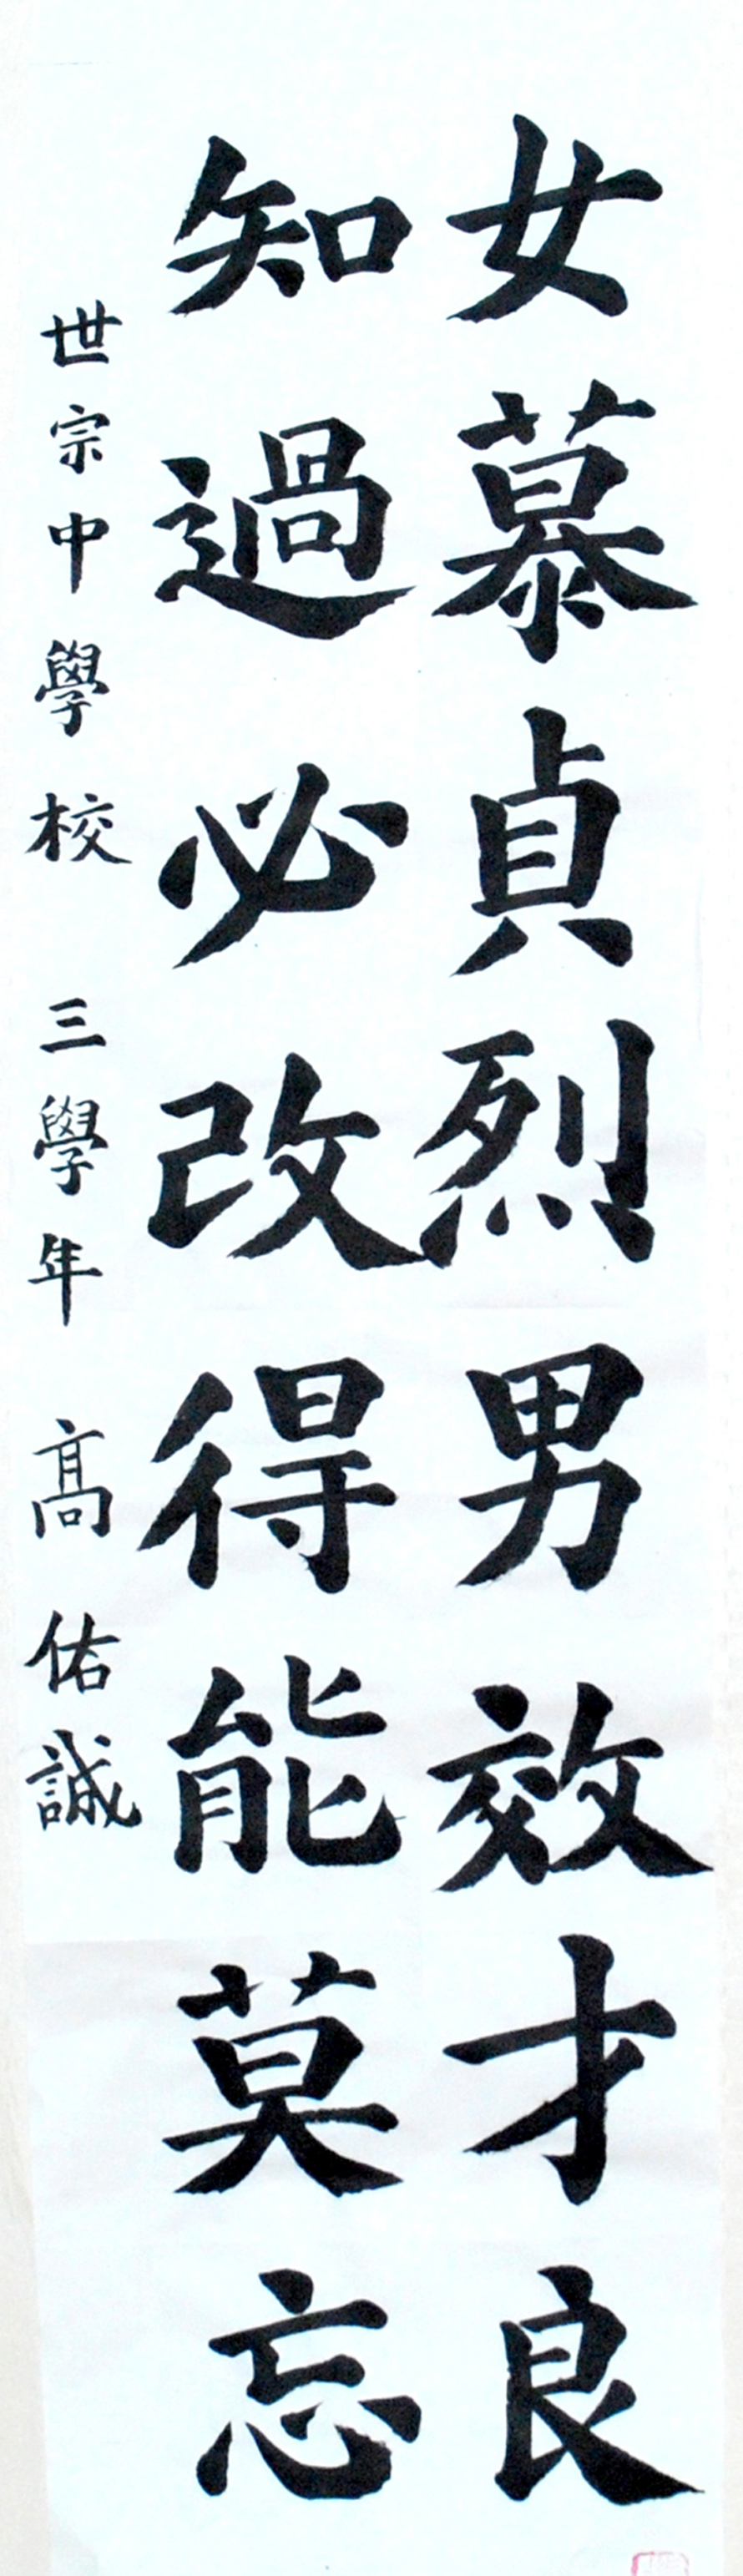 女慕貞烈男效才良
知過必改得能莫忘
世宗中學校 三學年 高佑誠